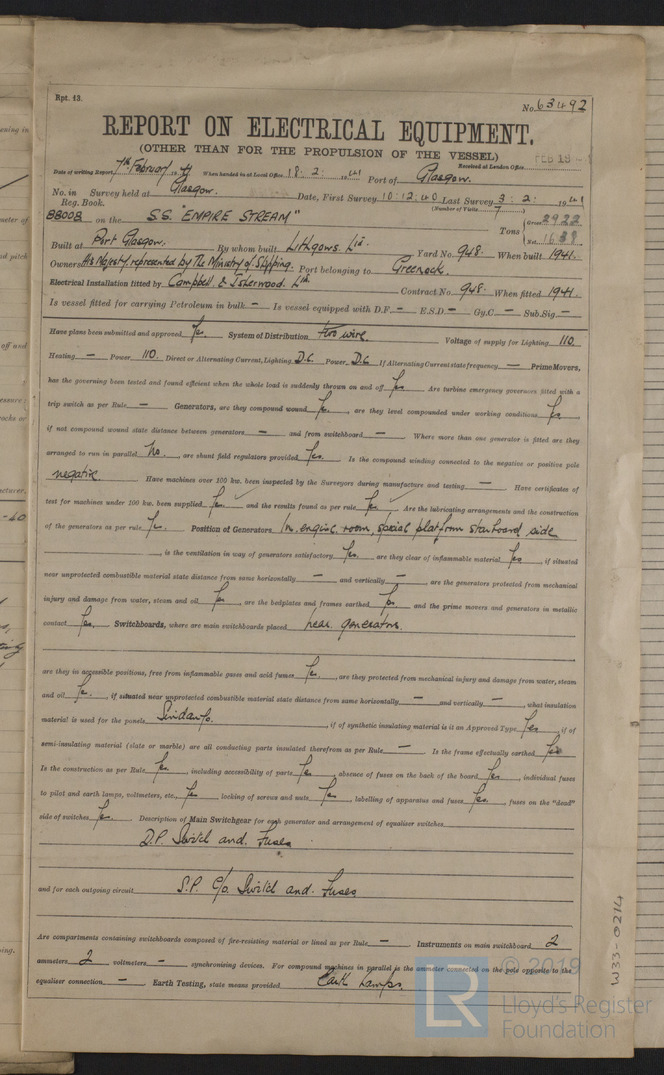 Rpt. 13.
No. 63492
REPORT ON ELECTRICAL EQUIPMENT.
(OTHER THAN FOR THE PROPULSION OF THE VESSEL)
Received at London Office
FEB 19
Date of writing Report 7th February 19 41 When handed in at Local Office 18: 2: 1941 Port of Glasgow.
No. in Survey held at Glasgow. Date, First Survey 10:12:40 Last Survey 3:2: 1941
Reg. Book. (Number of Visits 7)
88008 on the S.S. "EMPIRE STREAM" Tons Gross 2922
Net 1639
Built at Port Glasgow. By whom built Lithgows. Ltd. Yard No. 948. When built 1941.
Owners His Majesty represented by The Ministry of Shipping. Port belonging to Greenock.
Electrical Installation fitted by Campbell & Isherwood. Ltd. Contract No. 948. When fitted 1941.
Is vessel fitted for carrying Petroleum in bulk — Is vessel equipped with D.F. — E.S.D. — Gy.C. — Sub.Sig. —
Have plans been submitted and approved Yes. System of Distribution Two wire. Voltage of supply for Lighting 110
Heating — Power 110. Direct or Alternating Current, Lighting D.C. Power D.C. If Alternating Current state frequency — Prime Movers,
has the governing been tested and found efficient when the whole load is suddenly thrown on and off Yes Are turbine emergency governors fitted with a
trip switch as per Rule — Generators, are they compound wound Yes, are they level compounded under working conditions Yes,
if not compound wound state distance between generators — and from switchboard — Where more than one generator is fitted are they
arranged to run in parallel No, are shunt field regulators provided Yes. Is the compound winding connected to the negative or positive pole
negative Have machines over 100 kw. been inspected by the Surveyors during manufacture and testing — Have certificates of
test for machines under 100 kw. been supplied Yes and the results found as per rule Yes Are the lubricating arrangements and the construction
of the generators as per rule Yes. Position of Generators In engine room, special platform starboard side
, is the ventilation in way of generators satisfactory Yes. are they clear of inflammable material Yes, if situated
near unprotected combustible material state distance from same horizontally — and vertically — are the generators protected from mechanical
injury and damage from water, steam and oil Yes, are the bedplates and frames earthed Yes and the prime movers and generators in metallic
contact Yes. Switchboards, where are main switchboards placed near generators.
are they in accessible positions, free from inflammable gases and acid fumes Yes, are they protected from mechanical injury and damage from water, steam
and oil Yes, if situated near unprotected combustible material state distance from same horizontally — and vertically —, what insulation
material is used for the panels Sindanyo., if of synthetic insulating material is it an Approved Type Yes, if of
semi-insulating material (slate or marble) are all conducting parts insulated therefrom as per Rule — Is the frame effectually earthed Yes
Is the construction as per Rule Yes, including accessibility of parts Yes, absence of fuses on the back of the board Yes, individual fuses
to pilot and earth lamps, voltmeters, etc. Yes, locking of screws and nuts Yes, labelling of apparatus and fuses Yes, fuses on the "dead"
side of switches Yes. Description of Main Switchgear for each generator and arrangement of equaliser switches
D.P. Switch and. Fuses
and for each outgoing circuit S.P. C/o. Switch and. Fuses
Are compartments containing switchboards composed of fire-resisting material or lined as per Rule — Instruments on main switchboard 2
ammeters 2 voltmeters — synchronising devices. For compound machines in parallel is the ammeter connected on the pole opposite to the
equaliser connection — Earth Testing, state means provided Earth Lamps.
W33-0214
© 2019
LR
Lloyd's Register
Foundation